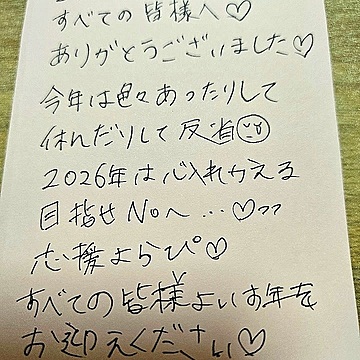 すべての皆様へ♡
ありがとうございました♡
今年は色々あったりして
休んだりして反省
2026年は心入れかえる
目指せNoへ…♡ワワ
応援よらぴ♡
すべての皆様よいお年を
お迎えください♡